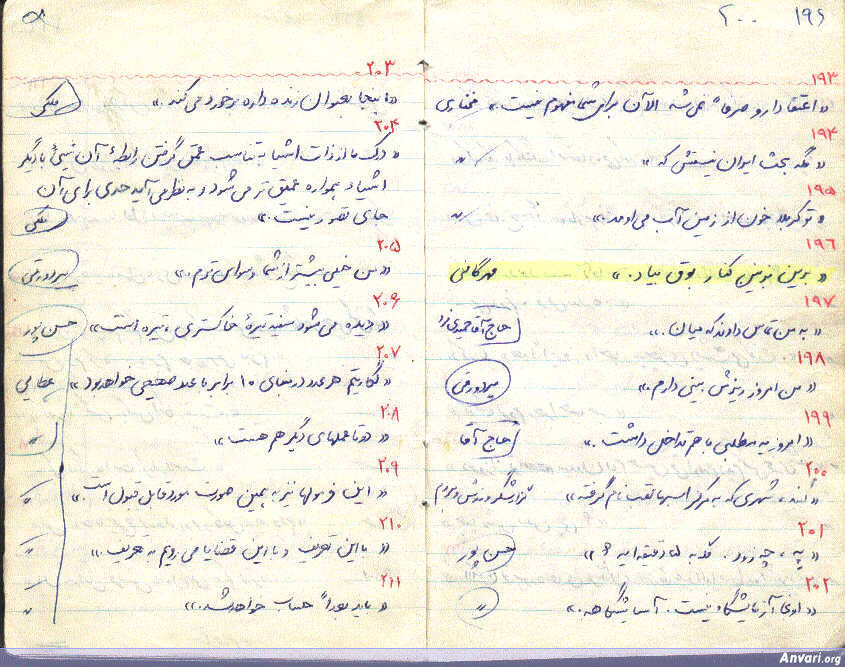 ۱۹۶ ۲۰۰
۱۹۳
« اعتقاد دارو صرفاً نمی‌شه الآن برای شما مفهوم نیست. » مختاری
۱۹۴
« نگه بحث ایران نیستش که » "
۱۹۵
« تو کربلا خون از زمین آب می‌اومد. » "
۱۹۶
« برین بوئین کنار بوق بیاد. » مهرگانی
۱۹۷
« به من تماس دادند که میان. » حاج آقا حمیدی نژاد
۱۹۸
« من امروز ریزش بینی دارم. » میردورقی
۱۹۹
« امروز یه مطلبی با هم تداخل داشت. » حاج آقا
۲۰۰
« شهری که به مرکز اسبها لقب نام گرفته » گزارشگر ورزش و مردم
۲۰۱
« یه ، چه زود. کلاً یه دقیقه ایه ؟ » حسن پور
۲۰۲
« اونا آزمایشگاه نیست. آسایشگاهه. » "
۵۸
۲۰۳
« اینجا بعنوان زنده داره برخورد می‌کند. » ملکی
۲۰۴
« درک ما از ذات اشیا به تناسب عمق گرفتن رابطهٔ آن شیئ با دیگر
اشیاء همواره عمیق تر می‌شود و به نظر می‌آید حدی برای آن
جای تصور نیست. » ملکی
۲۰۵
« من خیلی بیشتر از شما رسوای توم. » میردورقی
۲۰۶
« دیده می‌شود سفید تیرهٔ خاکستری ، تیره است » حسن پور
۲۰۷
« لگاریتم هر عدد در مبنای ۱۰ برابر با عدد صحیحی خواهد بود » عطایی
۲۰۸
« دو تا عملهای دیگر هم هست » "
۲۰۹
« این فرمولها نیز به همین صورت مورد قابل قبول است. » "
۲۱۰
« با این تعریف و با این قضایا می‌رویم به تعریف. » "
۲۱۱
« باید بعداً حساب خواهد شد. » "
Anvari.org